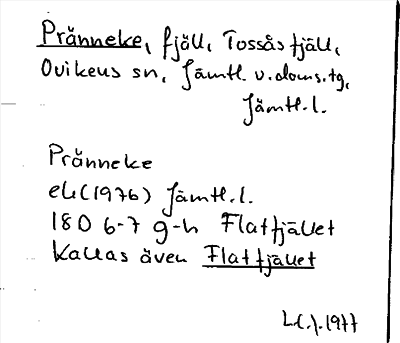 Prånneke, fjäll, Tossåsfjäll,
Ovikens sn, Jämtl. v. doms.tg,
Jämtl. l.
Prånneke
ek (1976) Jämtl. l.
180 6-7 g-h Flatfjället
Kallas även Flatfjället
1977